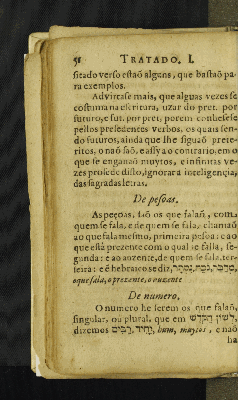 56 TRATADO. I.
sitado verso estaõ alguns, que bastaõ pa-
ra exemplos.
Advirtase mais, que algũas vezes se
costuma na escritura, uzar do pret. por
futuro, e fut. por pret, porem conhesese
pellos presedentes verbos, os quais sen-
do futuros, ainda que lhe siguaõ prete-
ritos, o naõ saõ, e asi y ao contrario, em o
que se enganaõ muytos, e infinitas ve-
zes prosede disto, ignorar a inteligençia,
das sagradas letras.
De pesoas.
As pesoas, saõ os que falaõ, com
quem se fala, e de quem se fala, chamaõ
ao que fala mesmo, primeira pesoa: e ao
que está prezente com o qual se falla, se-
gunda: e ao auzente, de quem se fala, ter-
seira: e é hebraico se diz,
o que fala, o prezente, o auzente
De numero.
O numero he serem os que falaõ,
singular, ou plural, que em לשון הקדש
dizemos יחיד, רבים, hum, muytos, e naõ
ha